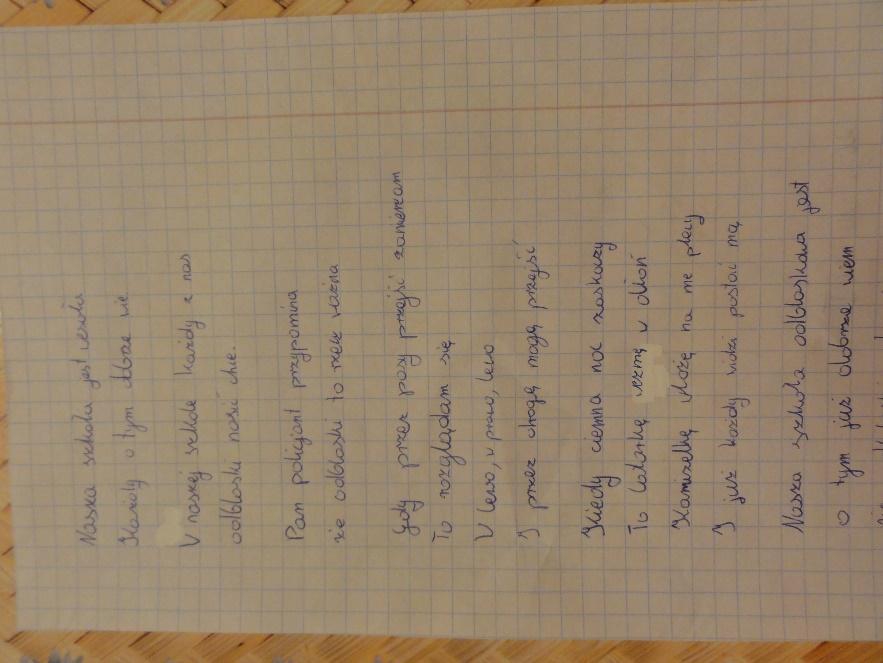 Nasza szkoła jest wesoła
Każdy o tym dobrze wie
W naszej szkole każdy z nas
odblaski nosić chce.
Pan policjant przypomina
że odblaski to rzecz ważna
Gdy przez pasy przejść zamierzam
To rozglądam się
W lewo, w prawo, lewo
I przez drogę mogę przejść
Kiedy ciemna noc zaskoczy
To latarkę wezmę w dłoń
Kamizelkę włożę na me plecy
I już każdy widzi postać mą
Nasza szkoła odblaskowa jest
o tym już dobrze wiem